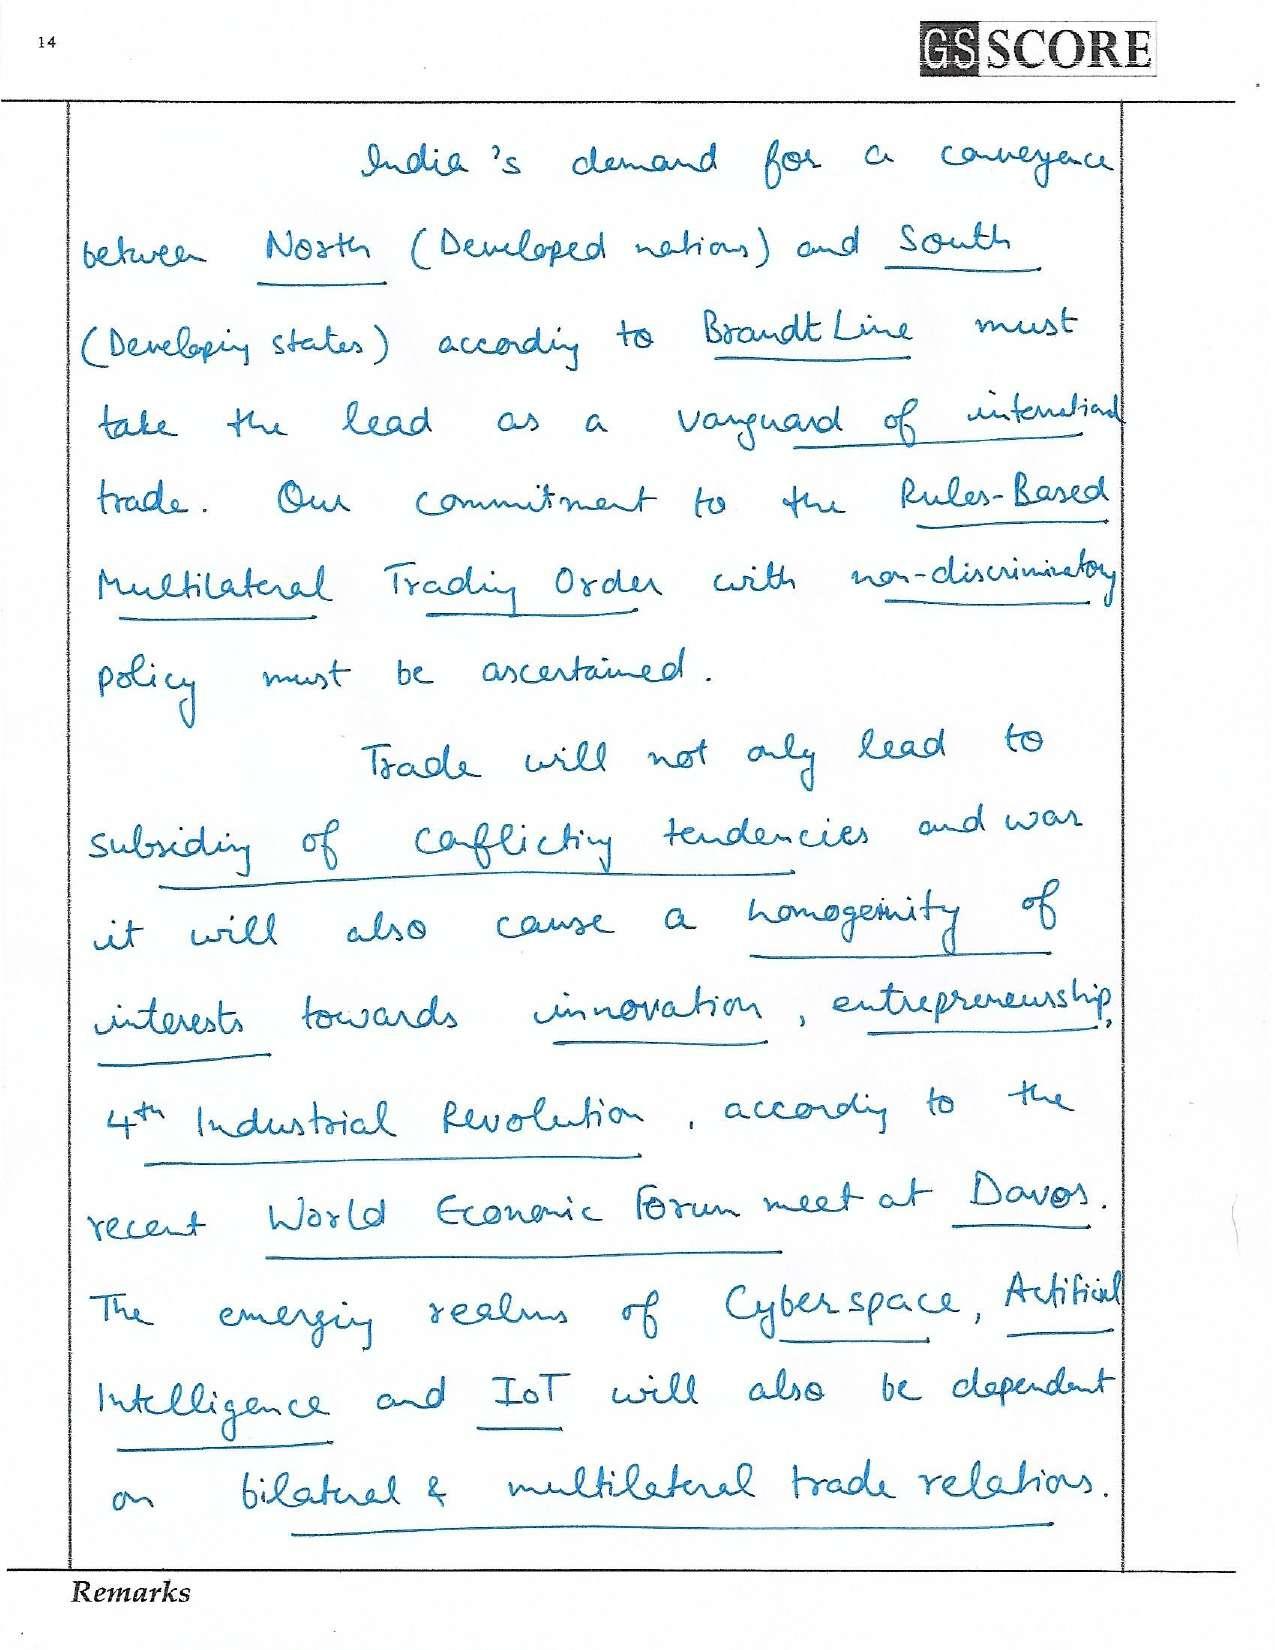 14
GS SCORE
India's demand for a conveyence
between North (Developed nations) and South
(Developing states) according to Brandt Line must
take the lead as a vanguard of international
trade. Our commitment to the Rules-Based
Multilateral Trading Order with non-discriminatory
policy must be ascertained.
Trade will not only lead to
subsiding of conflicting tendencies and war
it will also cause a homogeinity of
interests towards innovation, entrepreneurship,
4th Industrial Revolution, according to the
recent World Economic Forum meet at Davos.
The emerging realms of Cyberspace, Artificial
Intelligence and IoT will also be dependent
on bilateral & multilateral trade relations.
Remarks